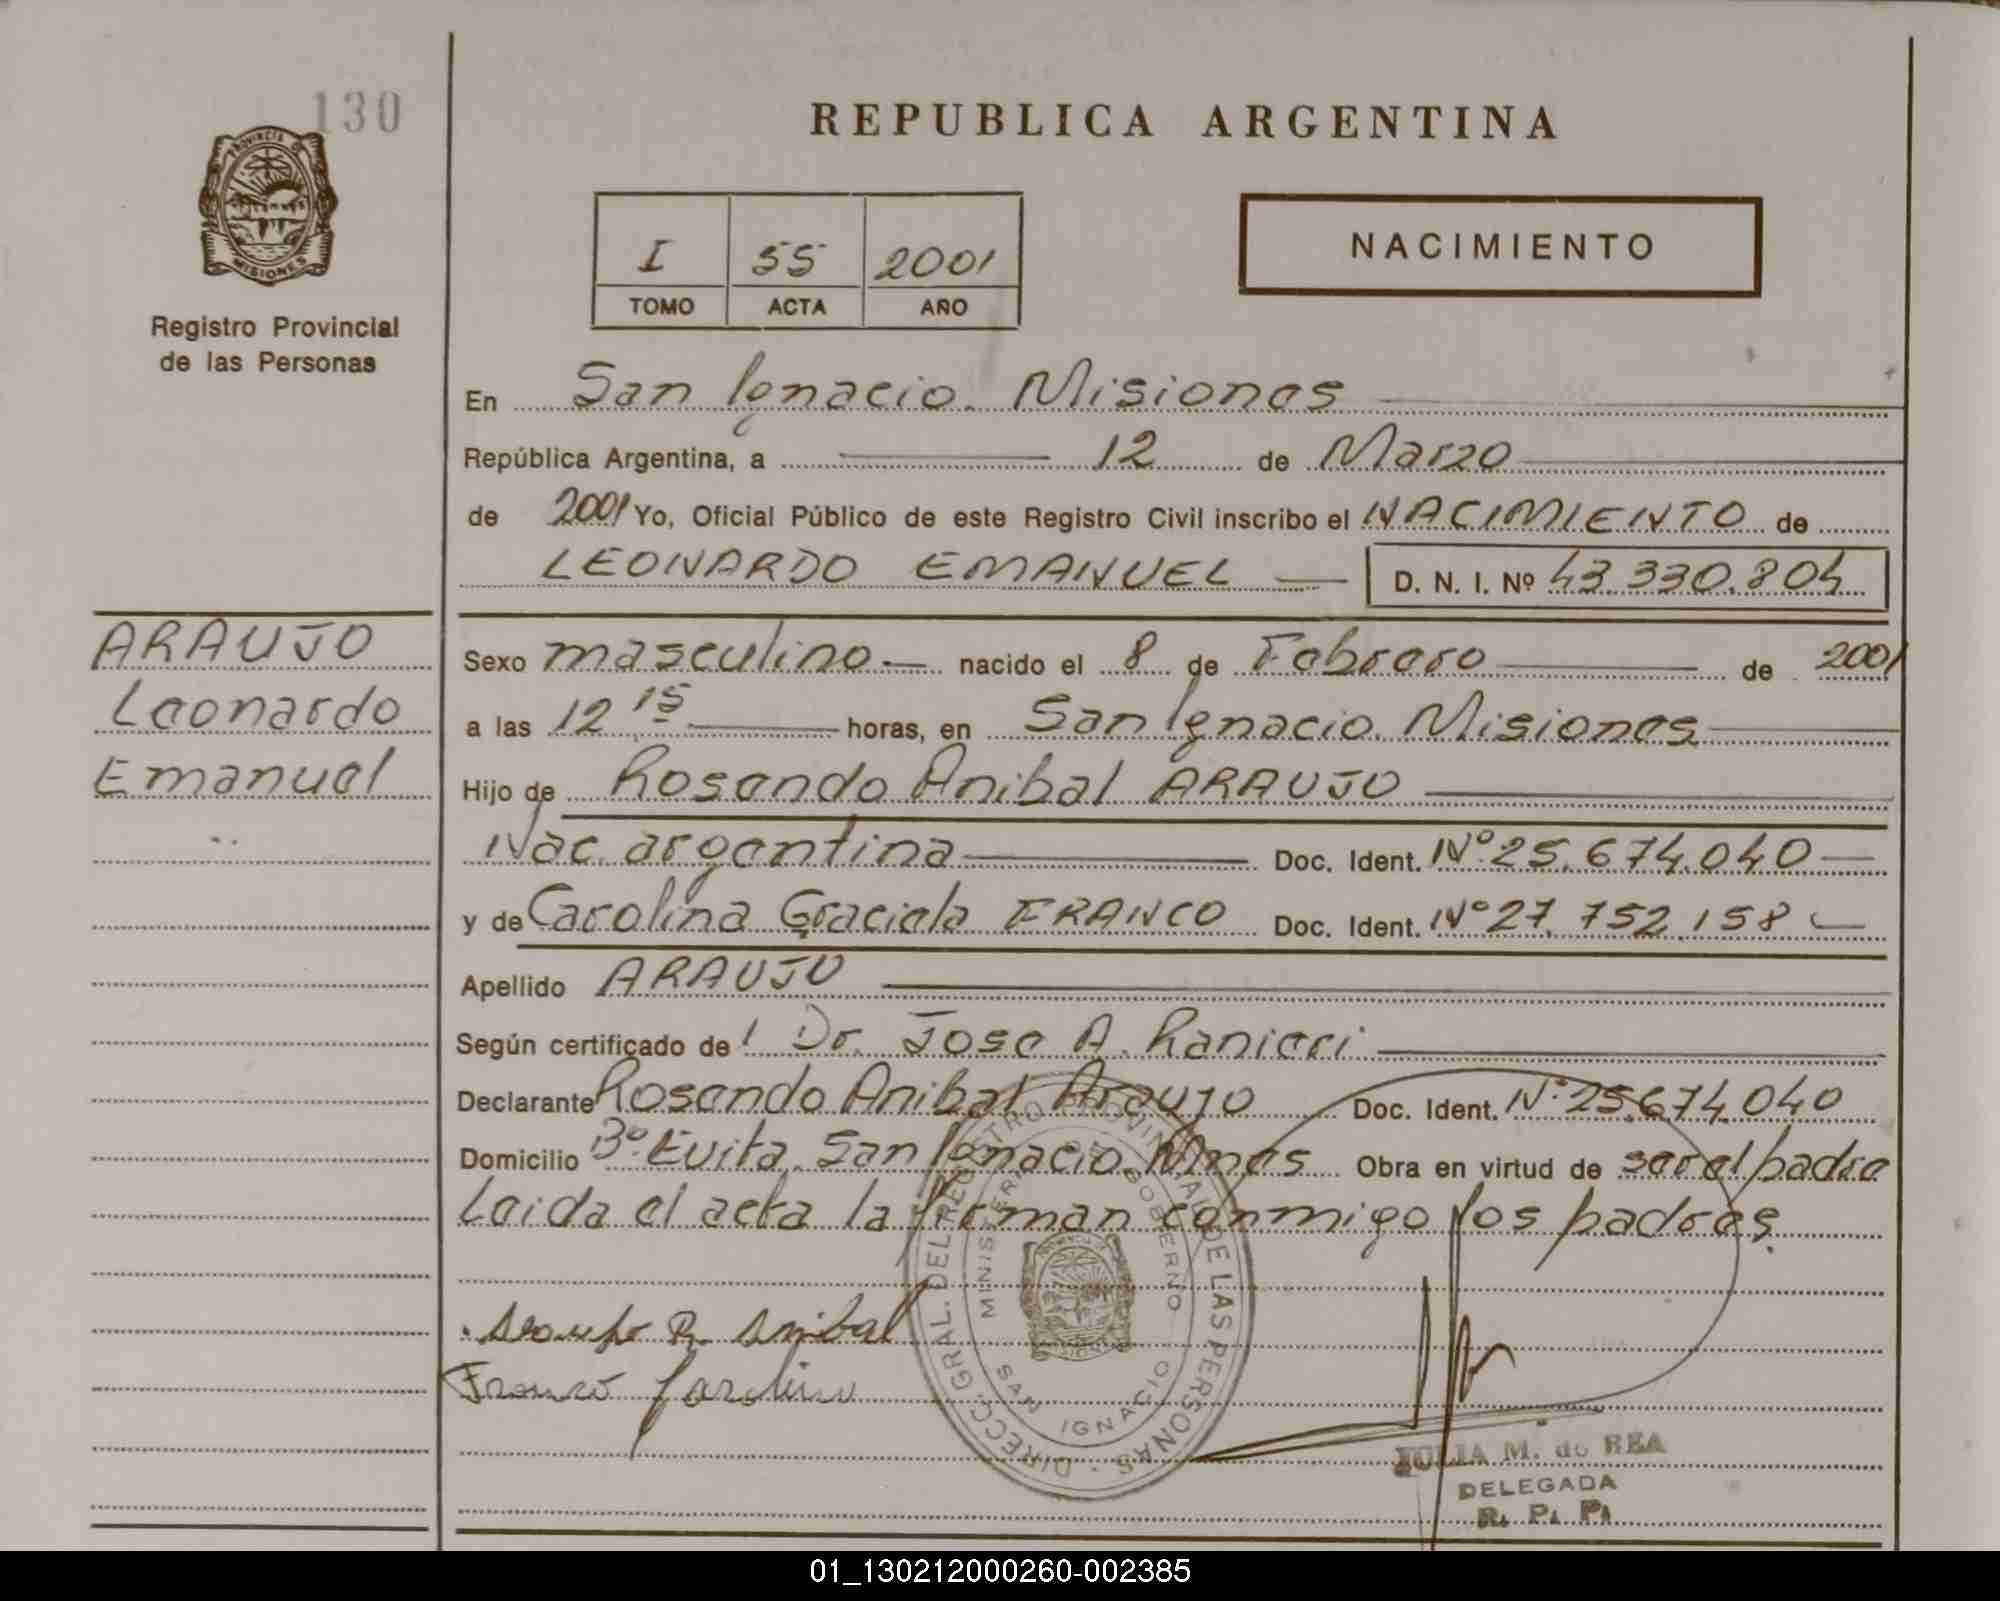 130
REPUBLICA ARGENTINA
PROVINCIA DE
MISIONES
Registro Provincial
de las Personas
I 55 2001
TOMO ACTA AÑO
NACIMIENTO
En San Ignacio. Misiones
República Argentina, a 12 de Marzo
de 2001 Yo, Oficial Público de este Registro Civil inscribo el NACIMIENTO de
LEONARDO EMANUEL D. N. I. Nº 43.330.804
ARAUJO
Leonardo
Emanuel
Sexo masculino nacido el 8 de Febrero de 2001
a las 12 15 horas, en San Ignacio. Misiones
Hijo de Rosendo Anibal ARAUJO
Nac. argentina Doc. Ident. Nº 25.674.040
y de Carolina Graciela FRANCO Doc. Ident. Nº 27.752.158
Apellido ARAUJO
Según certificado de l Dr. Jose A. Ranieri
Declarante Rosendo Anibal Araujo Doc. Ident. Nº 25.674.040
Domicilio Bº Evita. San Ignacio. Mnes Obra en virtud de ser el padre
Leida el acta la firman conmigo los padres.
Araujo R. Anibal
Franco Carolina
DIRECC. GRAL. DEL REGISTRO PROVINCIAL DE LAS PERSONAS
MINISTERIO DE GOBIERNO
SAN IGNACIO
JULIA M. de REA
DELEGADA
R. P. P.
01_130212000260-002385